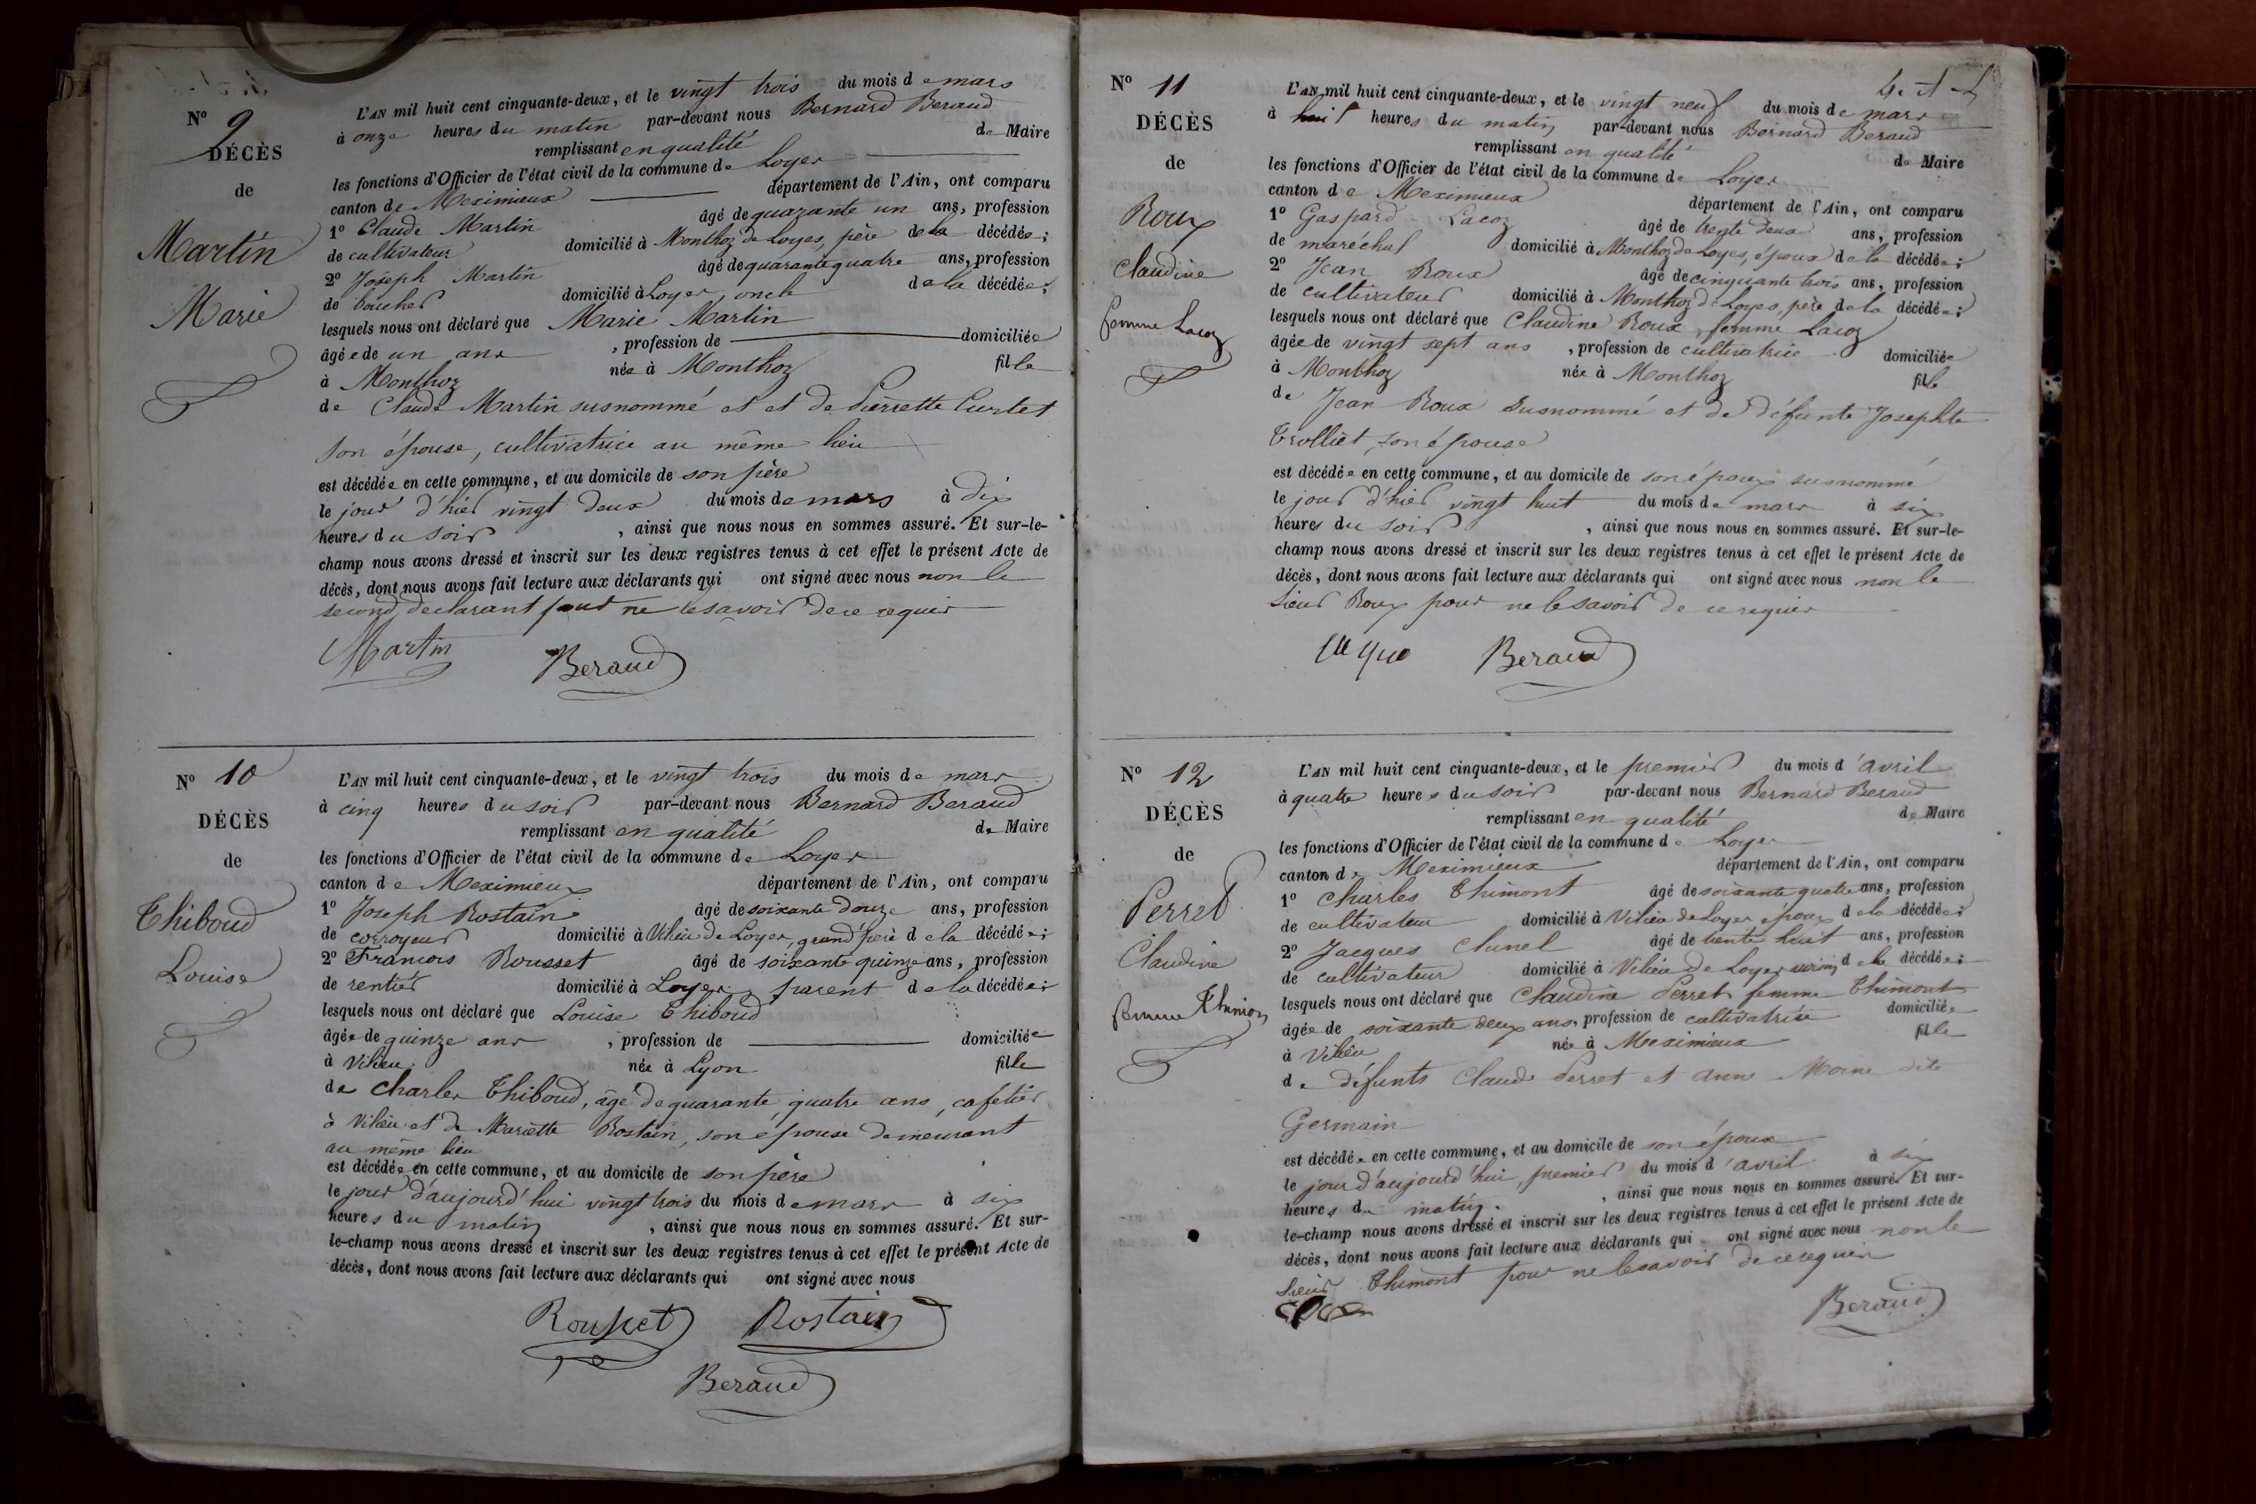 N° 9
DÉCÈS
de
Martin
Marie
L'AN mil huit cent cinquante-deux, et le vingt trois du mois de mars
à onze heures du matin par-devant nous Bernard Beraud
remplissant en qualité de Maire
les fonctions d'Officier de l'état civil de la commune de Loyes
canton de Meximieux département de l'Ain, ont comparu
1° Claude Martin âgé de quarante un ans, profession
de cultivateur domicilié à Monthoz de Loyes, père de la décédée;
2° Joseph Martin âgé de quarante quatre ans, profession
de boucher domicilié à Loyes, oncle de la décédée;
lesquels nous ont déclaré que Marie Martin
âgée de un ans, profession de domiciliée
à Monthoz née à Monthoz fille
de Claude Martin susnommé et et de Pierrette Curtet
son épouse, cultivatrice au même lieu
est décédée en cette commune, et au domicile de son père
le jour d'hier vingt deux du mois de mars à dix
heures du soir, ainsi que nous nous en sommes assuré. Et sur-le-
champ nous avons dressé et inscrit sur les deux registres tenus à cet effet le présent Acte de
décès, dont nous avons fait lecture aux déclarants qui ont signé avec nous non le
second déclarant pour ne le savoir de ce requis
Martin Beraud
N° 10
DÉCÈS
de
Thiboud
Louise
L'AN mil huit cent cinquante-deux, et le vingt trois du mois de mars
à cinq heures du soir par-devant nous Bernard Beraud
remplissant en qualité de Maire
les fonctions d'Officier de l'état civil de la commune de Loyes
canton de Meximieux département de l'Ain, ont comparu
1° Joseph Rostain âgé de soixante douze ans, profession
de corroyeur domicilié à Vilieu de Loyes, grand'père de la décédée;
2° Francois Rousset âgé de soixante quinze ans, profession
de rentier domicilié à Loyes, parent de la décédée;
lesquels nous ont déclaré que Louise Thiboud
âgée de quinze ans, profession de domiciliée
à Vilieu née à Lyon fille
de Charles Thiboud, âgé de quarante quatre ans, cafetier
à Vilieu et de Mariette Rostain, son épouse demeurant
au même lieu
est décédée en cette commune, et au domicile de son père
le jour d'aujourd'hui vingt trois du mois de mars à six
heures du matin, ainsi que nous nous en sommes assuré. Et sur-
le-champ nous avons dressé et inscrit sur les deux registres tenus à cet effet le présent Acte de
décès, dont nous avons fait lecture aux déclarants qui ont signé avec nous
Rousset Rostain
Beraud
N° 11
DÉCÈS
de
Roux
Claudine
femme Lacoz
L'AN mil huit cent cinquante-deux, et le vingt neuf du mois de mars
à huit heures du matin par-devant nous Bernard Beraud
remplissant en qualité de Maire
les fonctions d'Officier de l'état civil de la commune de Loyes
canton de Meximieux département de l'Ain, ont comparu
1° Gaspard Lacoz âgé de trente deux ans, profession
de maréchal domicilié à Monthoz de Loyes, époux de la décédée;
2° Jean Roux âgé de cinquante trois ans, profession
de cultivateur domicilié à Monthoz de Loyes, père de la décédée;
lesquels nous ont déclaré que Claudine Roux, femme Lacoz
âgée de vingt sept ans, profession de cultivatrice domiciliée
à Monthoz née à Monthoz fille
de Jean Roux susnommé et de défunte Josephte
Trolliet, son épouse
est décédée en cette commune, et au domicile de son époux susnommé
le jour d'hier vingt huit du mois de mars à six
heures du soir, ainsi que nous nous en sommes assuré. Et sur-le-
champ nous avons dressé et inscrit sur les deux registres tenus à cet effet le présent Acte de
décès, dont nous avons fait lecture aux déclarants qui ont signé avec nous non le
sieur Roux pour ne le savoir de ce requis
Beraud
N° 12
DÉCÈS
de
Perret
Claudine
femme Thimon
L'AN mil huit cent cinquante-deux, et le premier du mois d'avril
à quatre heures du soir par-devant nous Bernard Beraud
remplissant en qualité de Maire
les fonctions d'Officier de l'état civil de la commune de Loyes
canton de Meximieux département de l'Ain, ont comparu
1° Charles Thimont âgé de soixante quatre ans, profession
de cultivateur domicilié à Vilieu de Loyes époux de la décédée;
2° Jacques Chanel âgé de trente huit ans, profession
de cultivateur domicilié à Vilieu de Loyes voisin de la décédée;
lesquels nous ont déclaré que Claudine Perret femme Thimont
âgée de soixante deux ans, profession de cultivatrice domiciliée
à Vilieu née à Meximieux fille
de défunts Claude Perret et Anne Morne dite
Germain
est décédée en cette commune, et au domicile de son époux
le jour d'aujourd'hui, premier du mois d'avril à six
heures du matin, ainsi que nous nous en sommes assuré. Et sur-
le-champ nous avons dressé et inscrit sur les deux registres tenus à cet effet le présent Acte de
décès, dont nous avons fait lecture aux déclarants qui ont signé avec nous non le
sieur Thimont pour ne le savoir de ce requis
Beraud